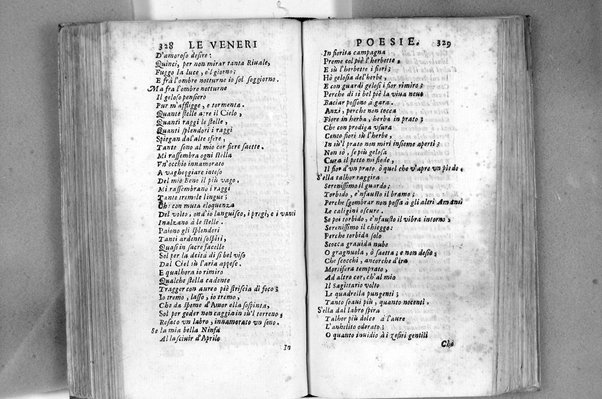 328 LE VENERI
D'amoroso desire:
Quinci, per non mirar tanta Rivale,
Fuggo la luce, e'l giorno;
E frà l'ombre notturne io sol soggiorno.
Ma frà l'ombre notturne
Il geloso pensiero
Pur m'affligge, e tormenta.
Quante stelle apre il Cielo,
Quanti raggi le stelle,
Quanti splendori i raggi
Spiegan dal'altre sfere,
Tante sono al mio cor fiere saette.
Mi rassembra ogni stella
Vn'occhio innamorato
A vagheggiar inteso
Del mio bene il più vago.
Mi rassembrano i raggi
Tante tremole lingue;
Ch' con muta eloquenza
Del volto, ond'io languisco, i pregi, e i vanti
Inalzano à le stelle.
Paiono gli splendori
Tanti ardenti sospiri,
Quasi in sacre facelle
Sol per la deità di sì bel viso
Dal Ciel sù l'aria appese.
E qualhora io rimiro
Qualche stella cadente
Tragger con aureo piè striscia di foco;
Io tremo, lasso, io tremo,
Che da speme d'Amor ella sospinta,
Sol per goder non caggia in su'l terreno,
Resaco un labro, innamorato un seno.
Se la mia bella Ninfa
Al lasciuir d'Aprile
In
POESIE. 329
In fiorita campagna
Preme col piè l'herbette,
E iù l'herbette i fiori;
Hò gelosia del'herbe,
E con guardi gelosi i fior rimiro;
Perche di sì bel piè la viua neue
Baciar possono à gara.
Anzi, perche non tocca
Fiore in herba, herba in prato;
Che con prodiga usura
Cento fiori sù l'herbe,
In su'l prato non miri insieme aperti;
Non sò, se più gelosa
Cura il petto mi fiede,
Il fior d'un prato, ò quel che v'apre un piede.
S'ella talhor raggira
Serenissimo il guardo;
Torbido, e'nfausto il bramo;
Perche sgombrar non possa à gli altri Amanti
Le caligini oscure.
Se poi torbido, e'nfausto il vibra intorno;
Serenissimo il chieggo:
Perche torbida solo
Scocca grauida nube
O gragnuola, ò saetta; e non desio;
Che scocchi, ancorche d'ira
Mortifera temprato,
Ad altro cor, ch'al mio
Il Sagittario volto
Le quadrella pungenti;
Tanto soaui più, quanto nocenti.
S'ella dal labro spira
Talhor più dolce à l'aure
L'anhelito odorato;
O quanto inuidio à i zefiri gentili
Che